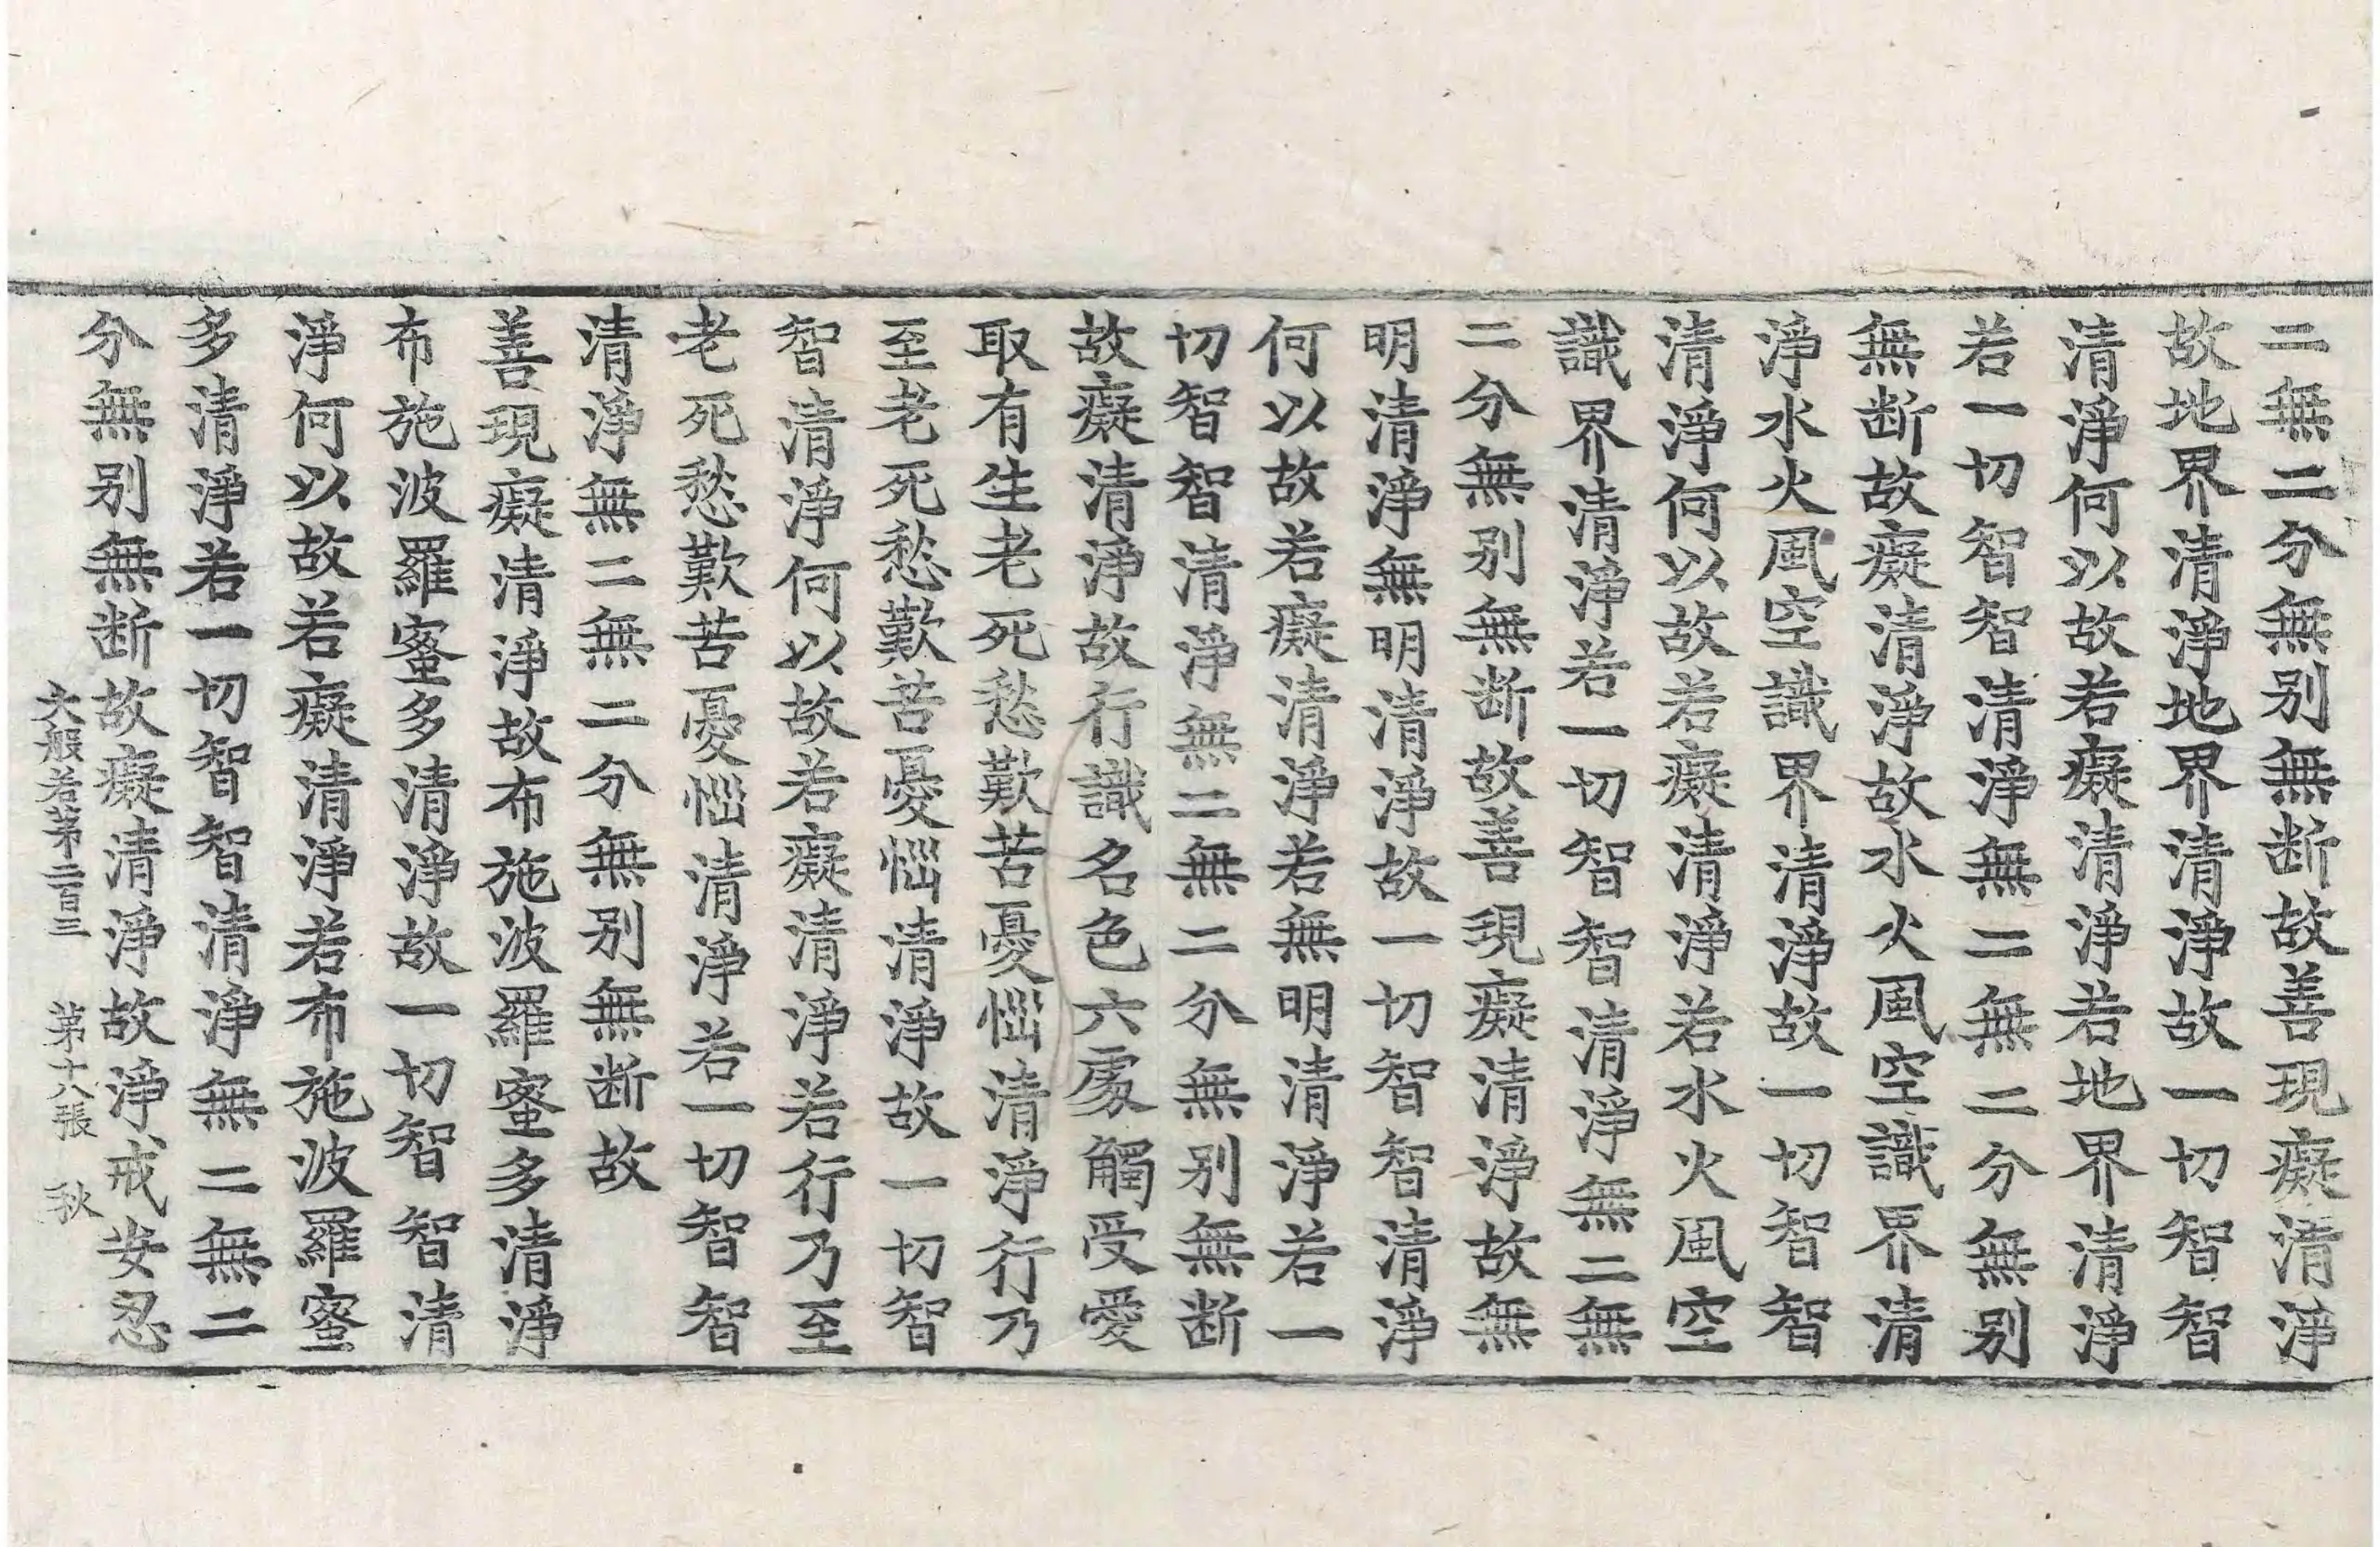 二無二分無別無断故善現癡清淨
故地界清淨地界清淨故一切智智
清淨何以故若癡清淨若地界清淨
若一切智智清淨無二無二分無別
無断故癡清淨故水火風空識界清
淨水火風空識界清淨故一切智智
清淨何以故若癡清淨若水火風空
識界清淨若一切智智清淨無二無
二分無別無断故善現癡清淨故無
明清淨無明清淨故一切智智清淨
何以故若癡清淨若無明清淨若一
切智智清淨無二無二分無別無断
故癡清淨故行識名色六處觸受愛
取有生老死愁歎苦憂惱清淨行乃
至老死愁歎苦憂惱清淨故一切智
智清淨何以故若癡清淨若行乃至
老死愁歎苦憂惱清淨若一切智智
清淨無二無二分無別無断故
善現癡清淨故布施波羅蜜多清淨
布施波羅蜜多清淨故一切智智清
淨何以故若癡清淨若布施波羅蜜
多清淨若一切智智清淨無二無二
分無別無断故癡清淨故淨戒安忍
大般若第二百三 第十八張 秋